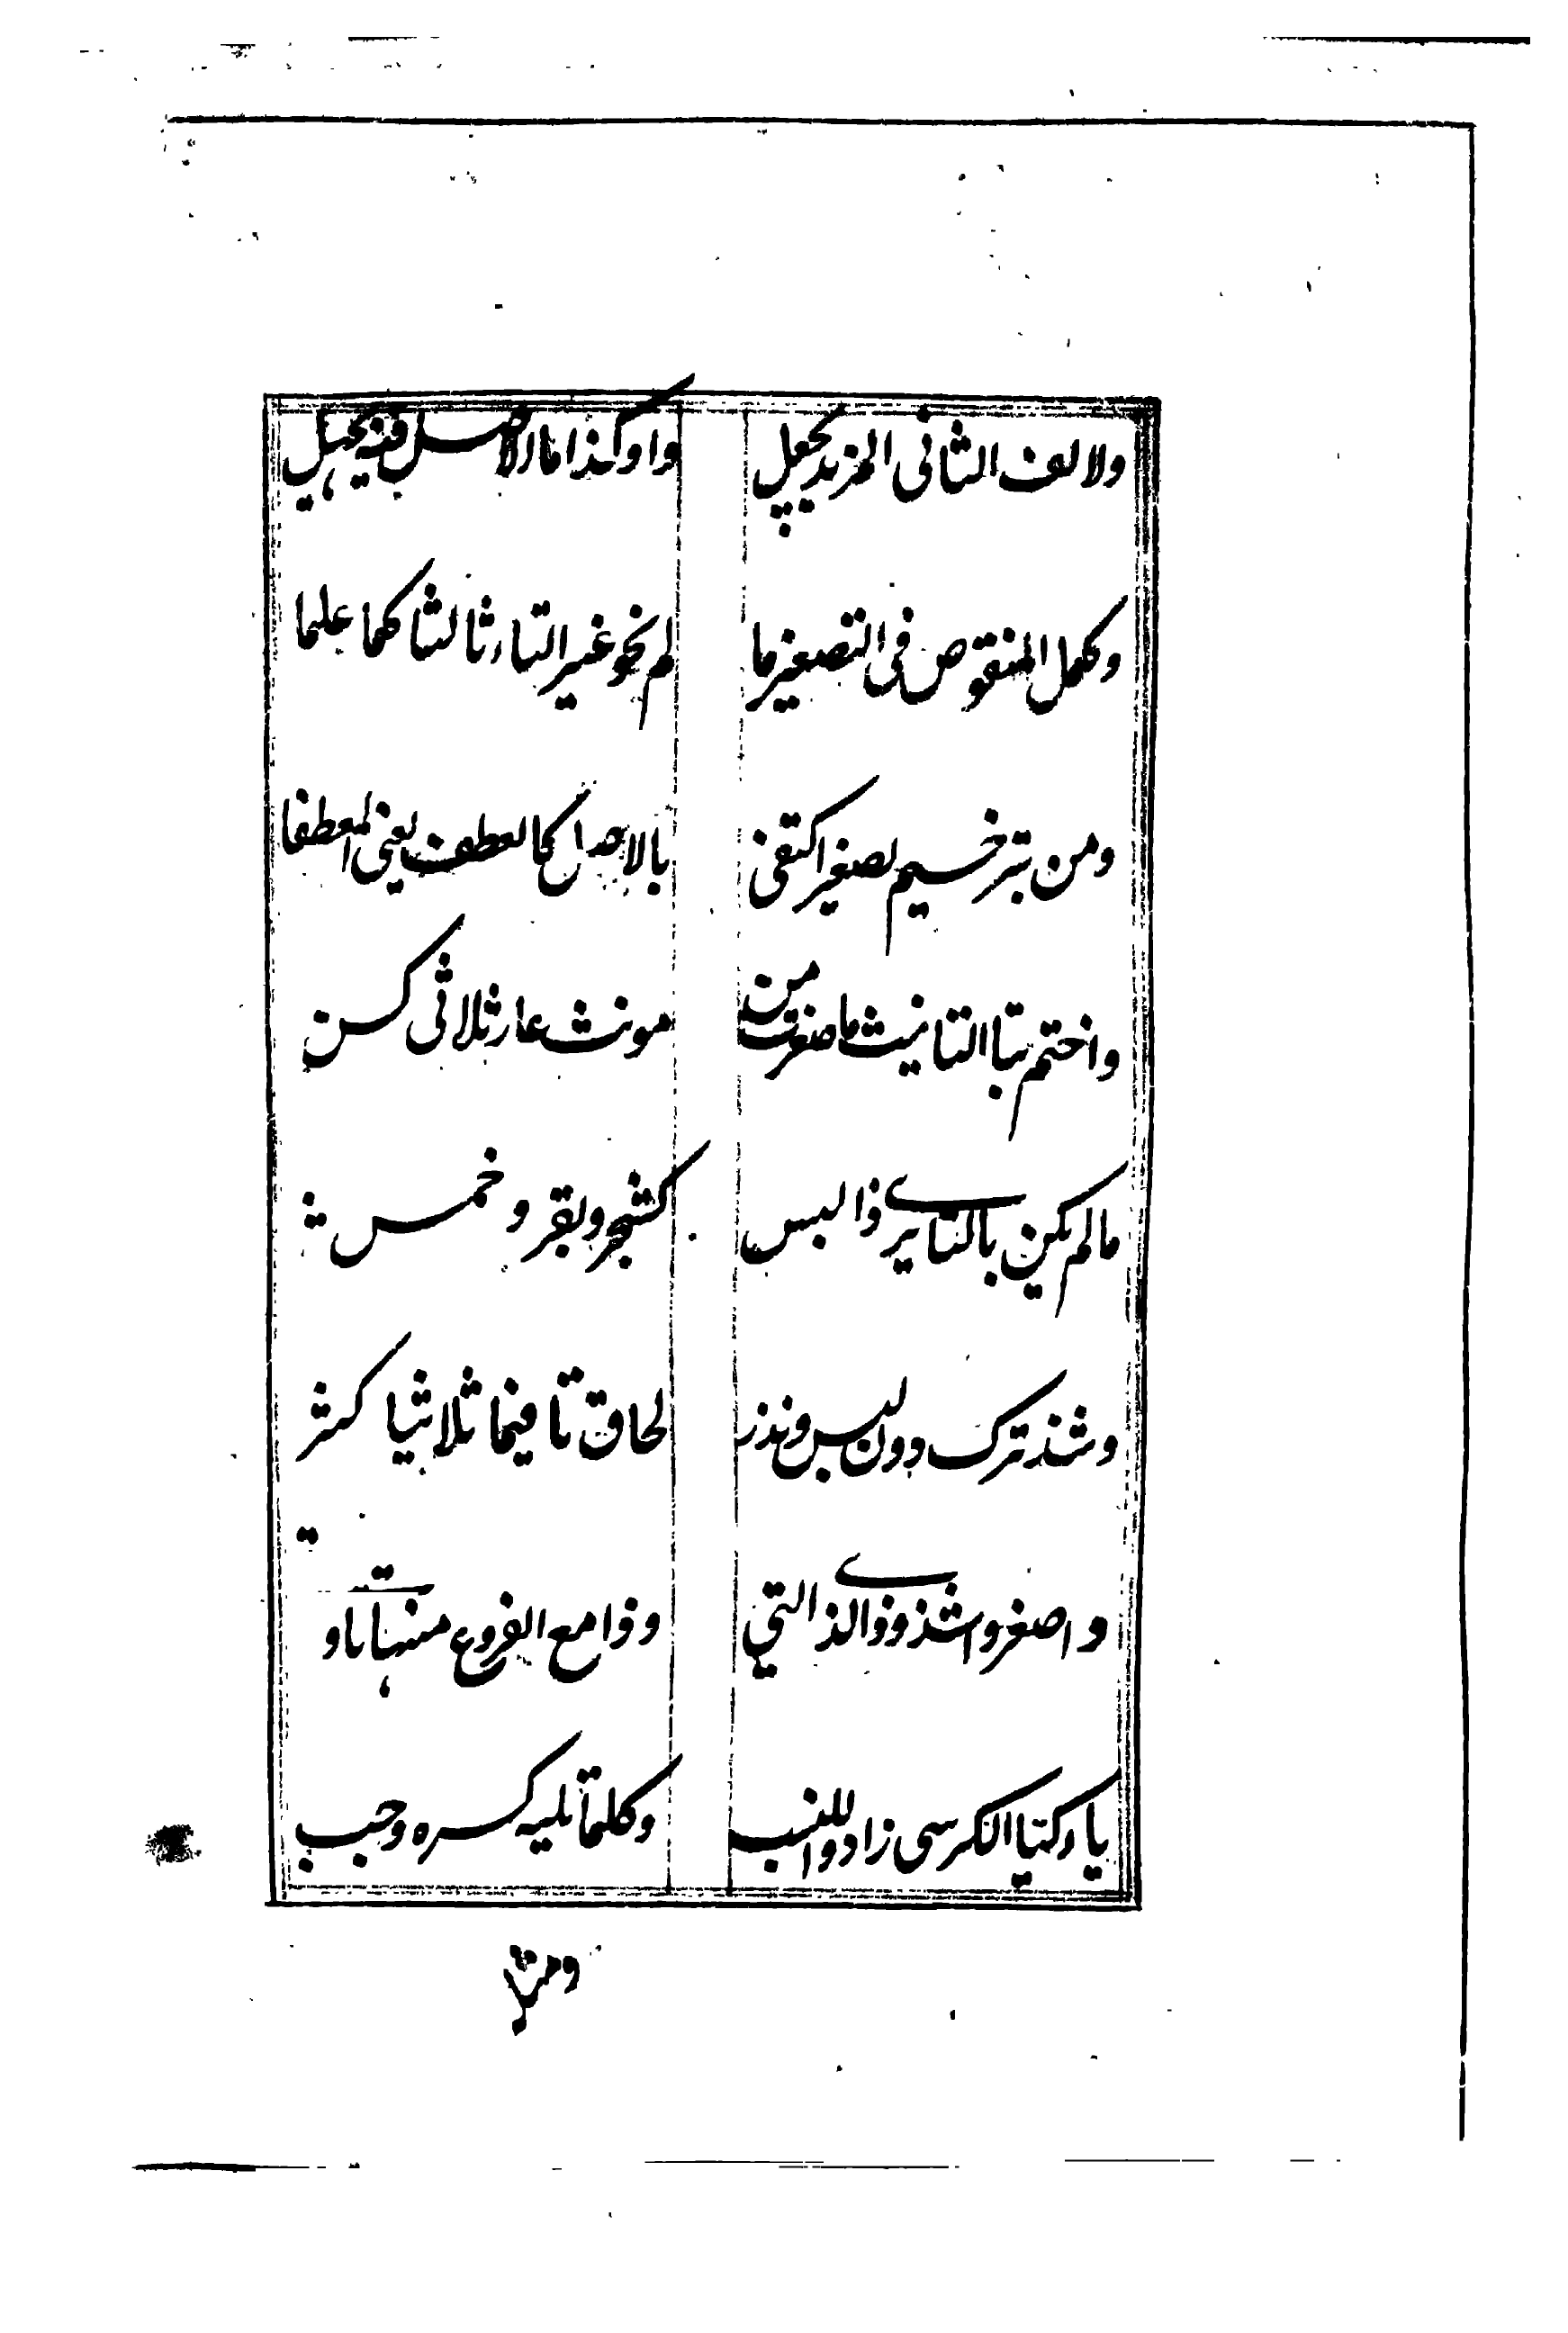 ولالف الثانی المزید یجعل واوا کذا ما الاصل فیه یجهل
وکمل المنقوص فی التصغیر ما لم یحو غیر التاء ثالثا کما علما
ومن بترخیم تصغیر اکتفی بالاصل کالعطیف یعنی المعطفا
واختم بتا التانیث ما صغرت من مونث عار ثلاثی کسن
ما لم یکن بالتا یری ذا لبس کشجر وبقر وخمس
وشذ ترک دون لبس وندر لحاق تا فیما ثلاثیا کثر
واصغروا شذوذا الذی التی وذا مع الفروع منها تا وتی
یاء کیا الکرسی زادوا للنسب وکلما تلیه کسره وجب
ومثله